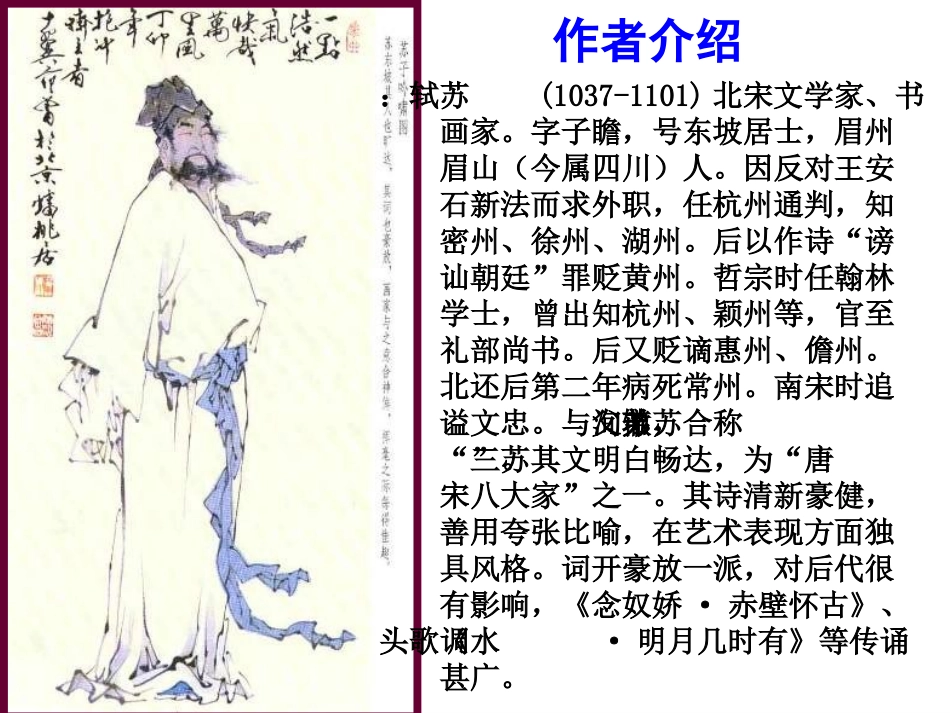 作者介绍
：轼苏 (1037-1101) 北宋文学家、书
画家。字子瞻，号东坡居士，眉州
眉山（今属四川）人。因反对王安
石新法而求外职，任杭州通判，知
密州、徐州、湖州。后以作诗“谤
讪朝廷”罪贬黄州。哲宗时任翰林
学士，曾出知杭州、颖州等，官至
礼部尚书。后又贬谪惠州、儋州。
北还后第二年病死常州。南宋时追
谥文忠。与苏合称
“三苏其文明白畅达，为“唐
宋八大家”之一。其诗清新豪健，
善用夸张比喻，在艺术表现方面独
具风格。词开豪放一派，对后代很
有影响，《念奴娇 · 赤壁怀古》、
头歌调水 · 明月几时有》等传诵
甚广。
苏子吟啸图
苏东坡其人也旷达，其词也豪放，画家与之意合神侔，挥毫之际每得佳趣。
一點
浩然
氣
快哉
萬
里風
丁卯
年
抱冲
齋主者
十翼范曾於北京